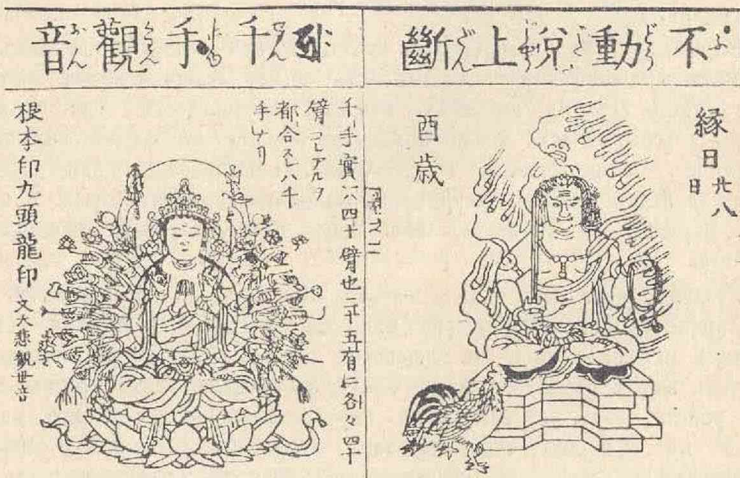 不動說上斷
縁日 廿八日
酉歳
千手觀音
千手實ハ四十臂也二十五有仁各々四十
臂コレアルヲ
都合スレハ千
手ナリ
根本印九頭龍印 又大悲觀世音